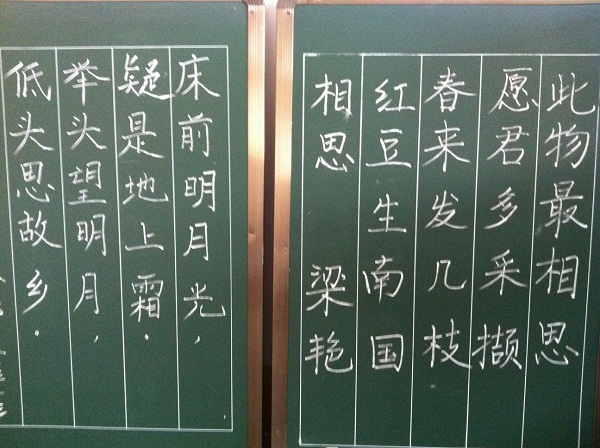 床前明月光，
疑是地上霜．
举头望明月，
低头思故乡．
相思 梁艳
红豆生南国
春来发几枝
愿君多采撷
此物最相思